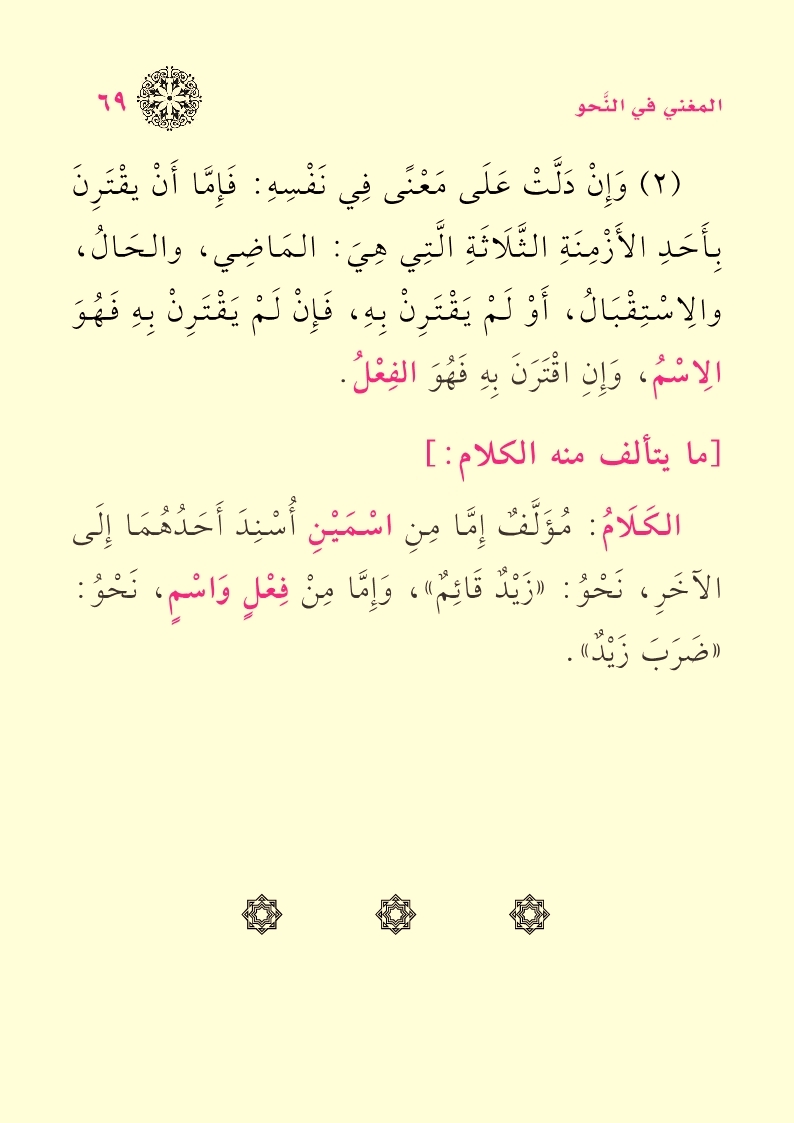 المغني في النَّحو ٦٩
(٢) وَإِنْ دَلَّتْ عَلَى مَعْنًى فِي نَفْسِهِ: فَإِمَّا أَنْ يقْتَرِنَ
بِأَحَدِ الأَزْمِنَةِ الثَّلَاثَةِ الَّتِي هِيَ: المَاضِي، والحَالُ،
والِاسْتِقْبَالُ، أَوْ لَمْ يَقْتَرِنْ بِهِ، فَإِنْ لَمْ يَقْتَرِنْ بِهِ فَهُوَ
الِاسْمُ، وَإِنِ اقْتَرَنَ بِهِ فَهُوَ الفِعْلُ.
[ما يتألف منه الكلام:]
الكَلَامُ: مُؤَلَّفٌ إِمَّا مِنِ اسْمَيْنِ أُسْنِدَ أَحَدُهُمَا إِلَى
الآخَرِ، نَحْوُ: «زَيْدٌ قَائِمٌ»، وَإِمَّا مِنْ فِعْلٍ وَاسْمٍ، نَحْوُ:
«ضَرَبَ زَيْدٌ».